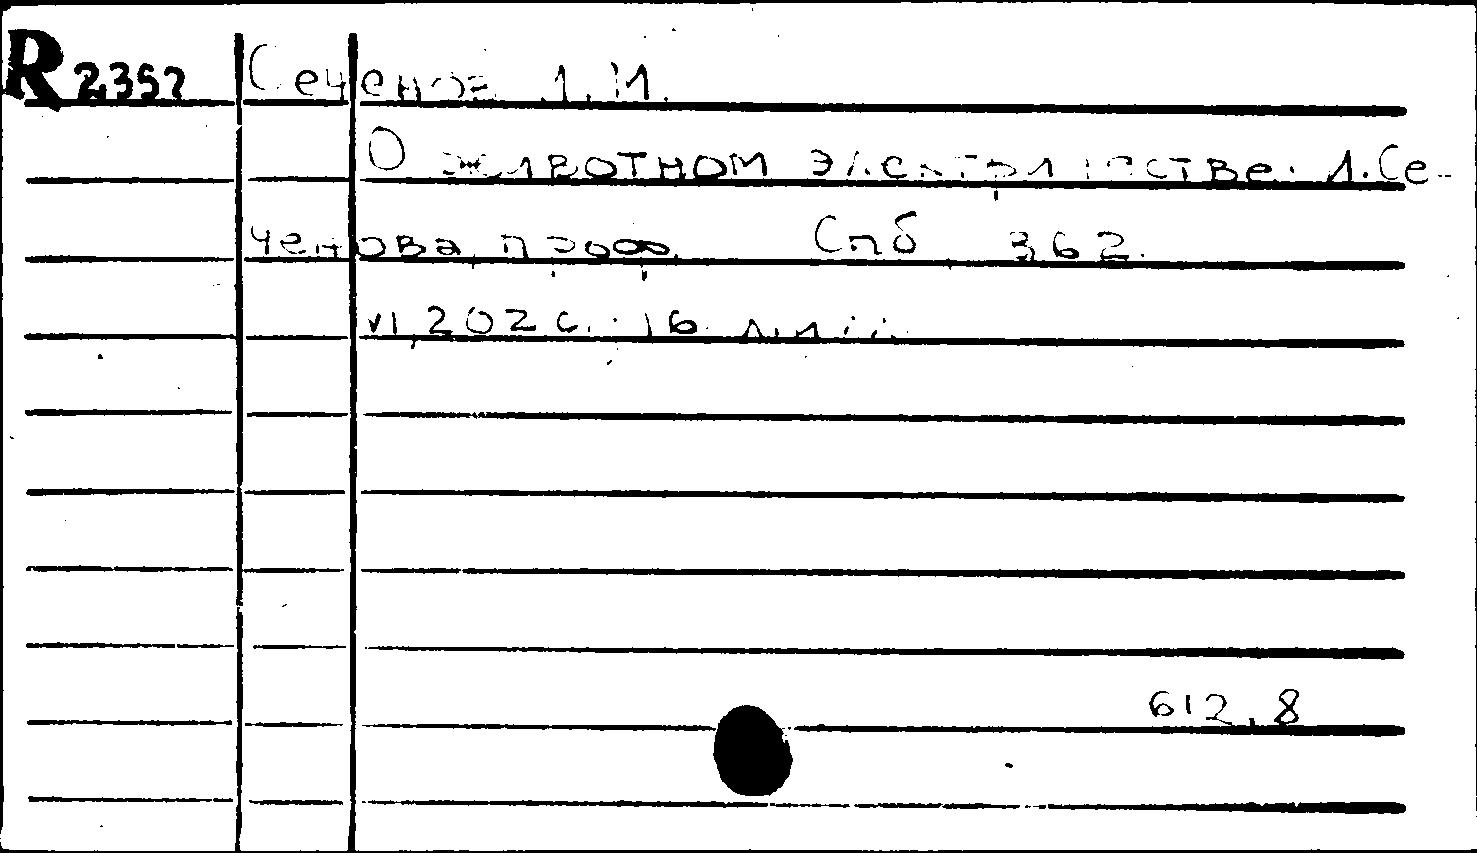 R 2357 Сеченов И.М.
О животном электричестве. И. Се-
ченова, проф. Спб, 862.
VI, 202 с.
612.8